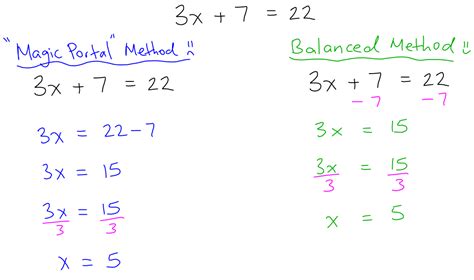 3x + 7 = 22
"Magic Portal" Method
3x + 7 = 22
3x = 22 - 7
3x = 15
3x/3 = 15/3
x = 5
Balanced Method
3x + 7 = 22
- 7 - 7
3x = 15
3x/3 = 15/3
x = 5